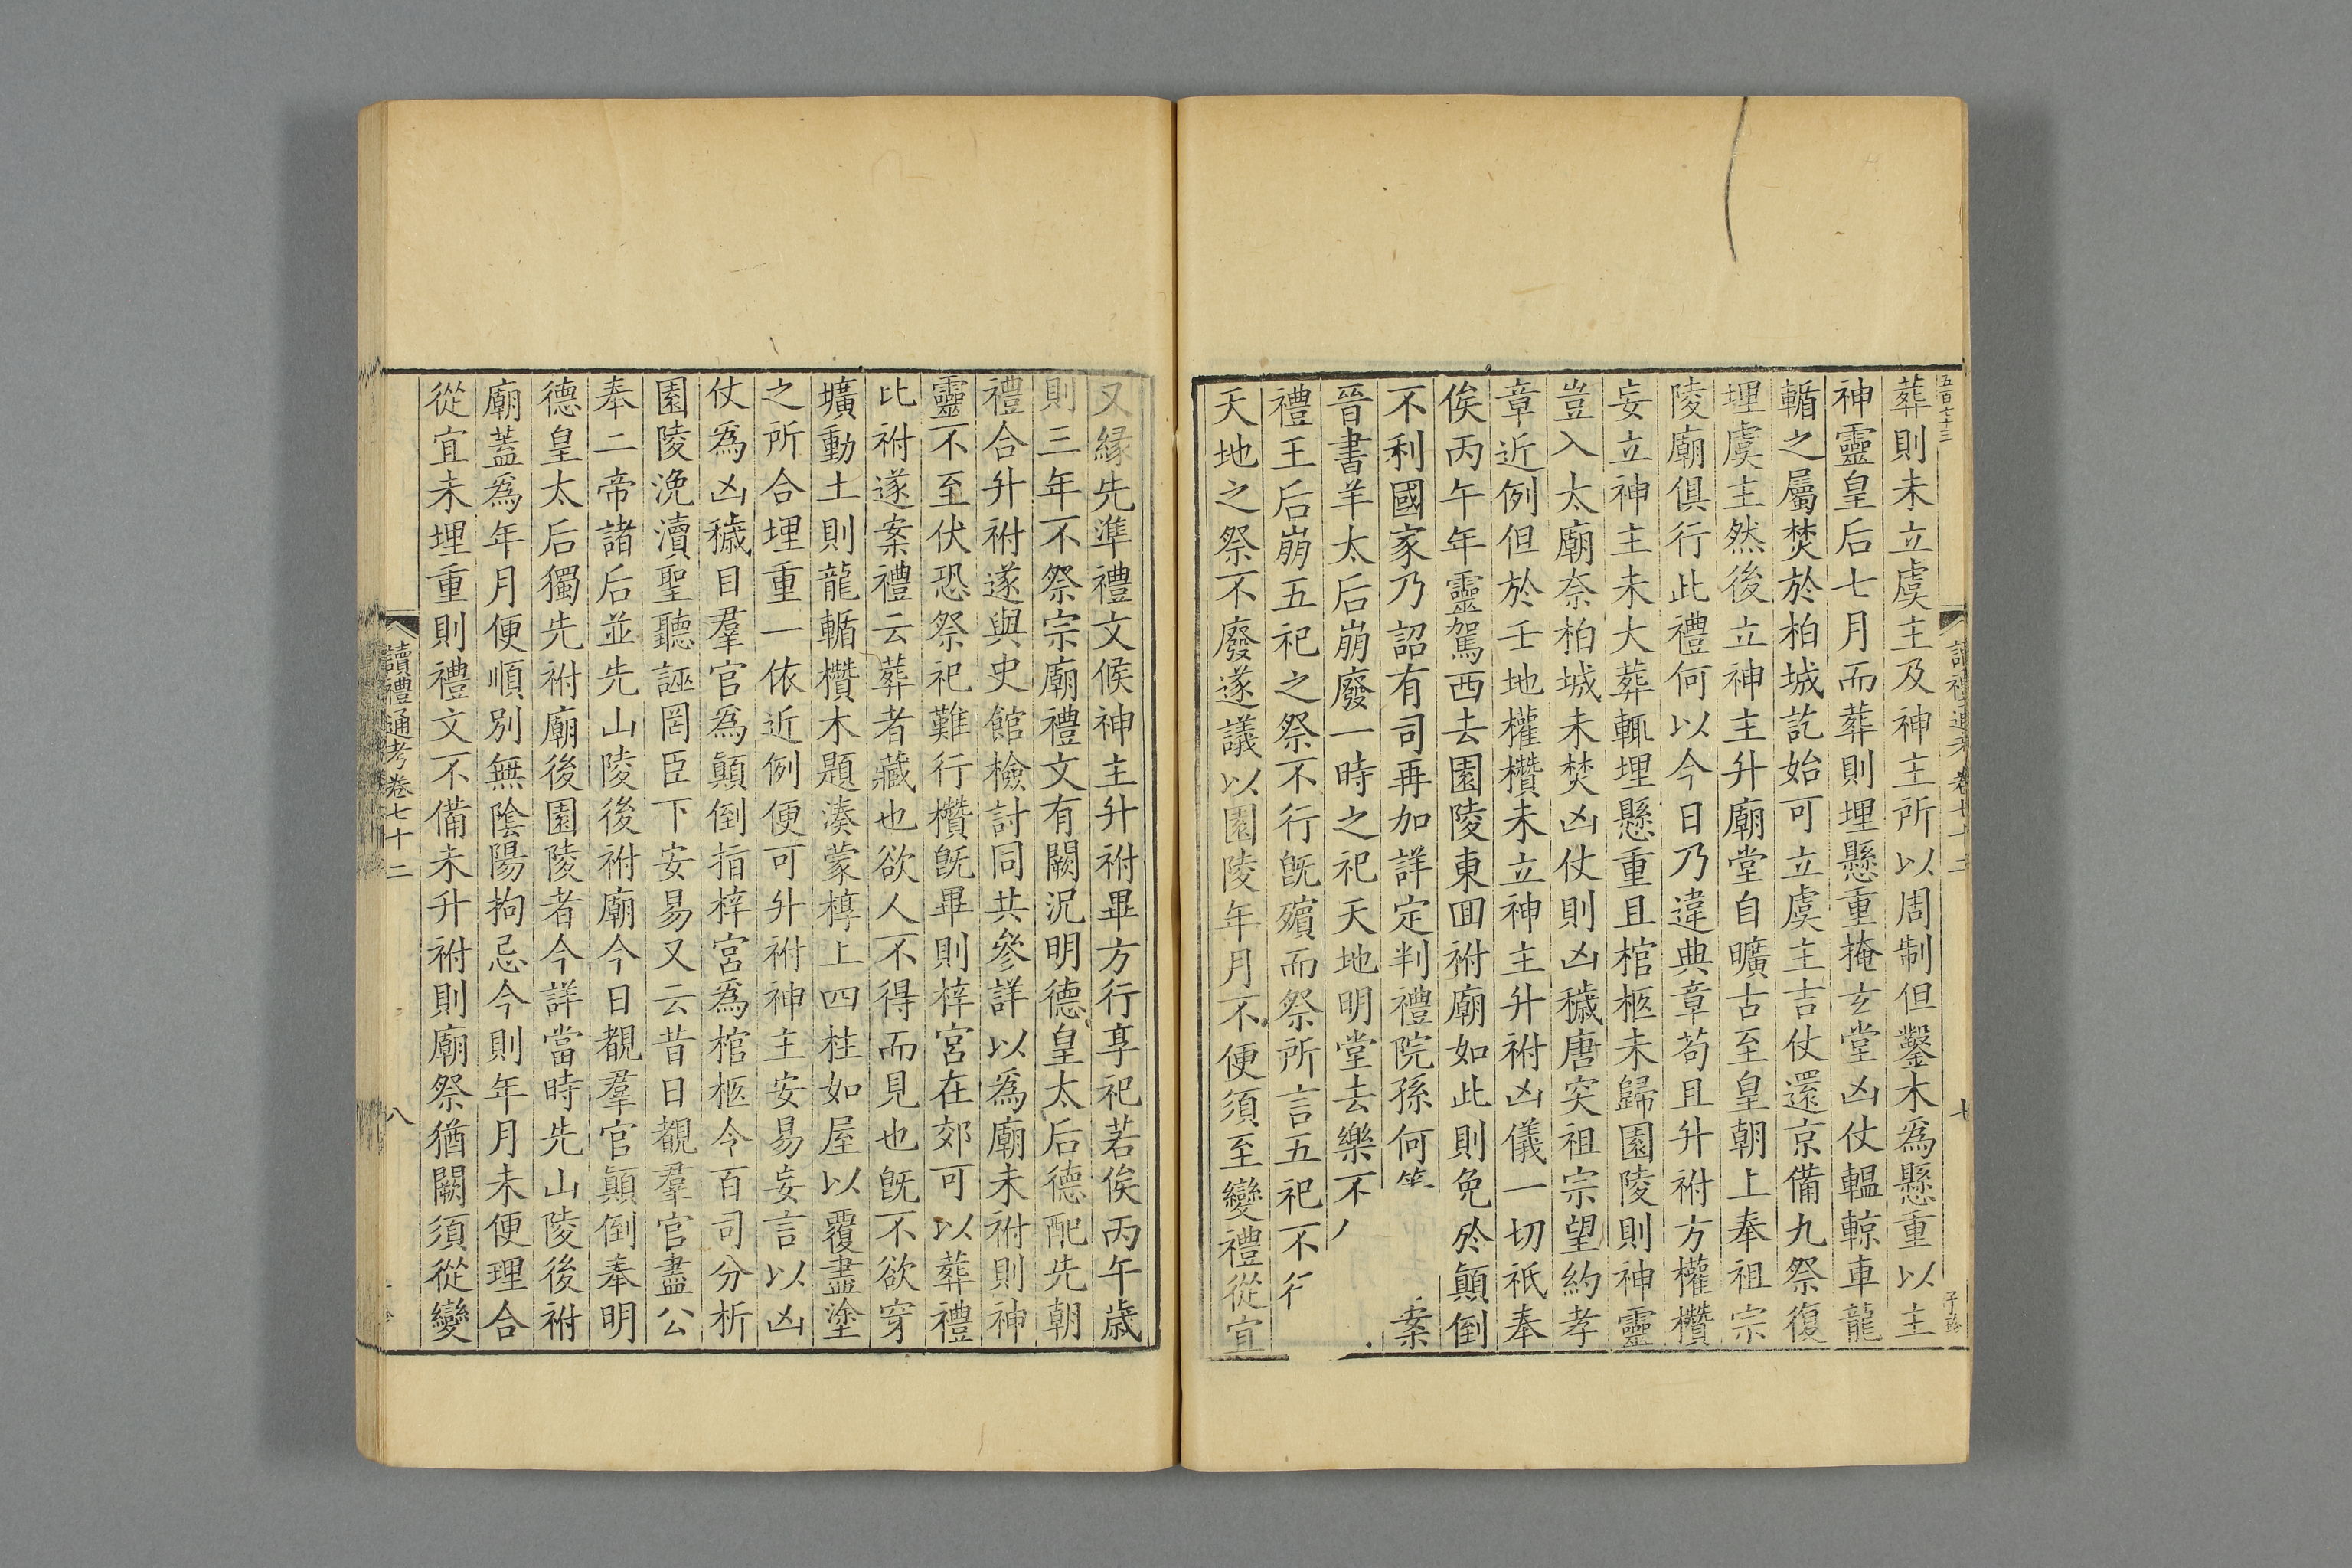 五百七十三
葬則未立虞主及神主所以周制但鑿木爲懸重以主
神靈皇后七月而葬則埋懸重掩玄堂凶仗轀輬車龍
輴之屬焚於柏城訖始可立虞主吉仗還京備九祭復
埋虞主然後立神主升廟堂自曠古至皇朝上奉祖宗
陵廟俱行此禮何以今日乃違典章苟且升祔方權欑
妄立神主未大葬輒埋懸重且棺柩未歸園陵則神靈
豈入太廟柰柏城未焚凶仗則凶穢唐突祖宗望約孝
章近例但於壬地權欑未立神主升祔凶儀一切祇奉
俟丙午年靈駕西去園陵東回祔廟如此則免於顛倒
不利國家乃詔有司再加詳定判禮院孫何 案
晉書羊太后崩廢一時之祀天地明堂去樂不
禮王后崩五祀之祭不行旣殯而祭所言五祀不行
天地之祭不廢遂議以園陵年月不便須至變禮從宜
又緣先準禮文候神主升祔畢方行享祀若俟丙午歲
則三年不祭宗廟禮文有闕況明德皇太后德配先朝
禮合升祔遂與史館檢討同共參詳以爲廟未祔則神
靈不至伏恐祭祀難行欑旣畢則梓宮在郊可以葬禮
比祔遂案禮云葬者藏也欲人不得而見也旣不欲穿
壙動土則龍輴欑木題湊蒙槨上四柱如屋以覆盡塗
之所合埋重一依近例便可升祔神主安易妄言以凶
仗爲凶穢目羣官爲顛倒指梓宮爲棺柩今百司分析
園陵浼瀆聖聽誣罔臣下安易又云昔日覩羣官盡公
奉二帝諸后並先山陵後祔廟今日覩羣官顛倒奉明
德皇太后獨先祔廟後園陵者今詳當時先山陵後祔
廟蓋爲年月便順別無陰陽拘忌今則年月未便理合
從宜未埋重則禮文不備未升祔則廟祭猶闕須從變
讀禮通考卷七十二
八